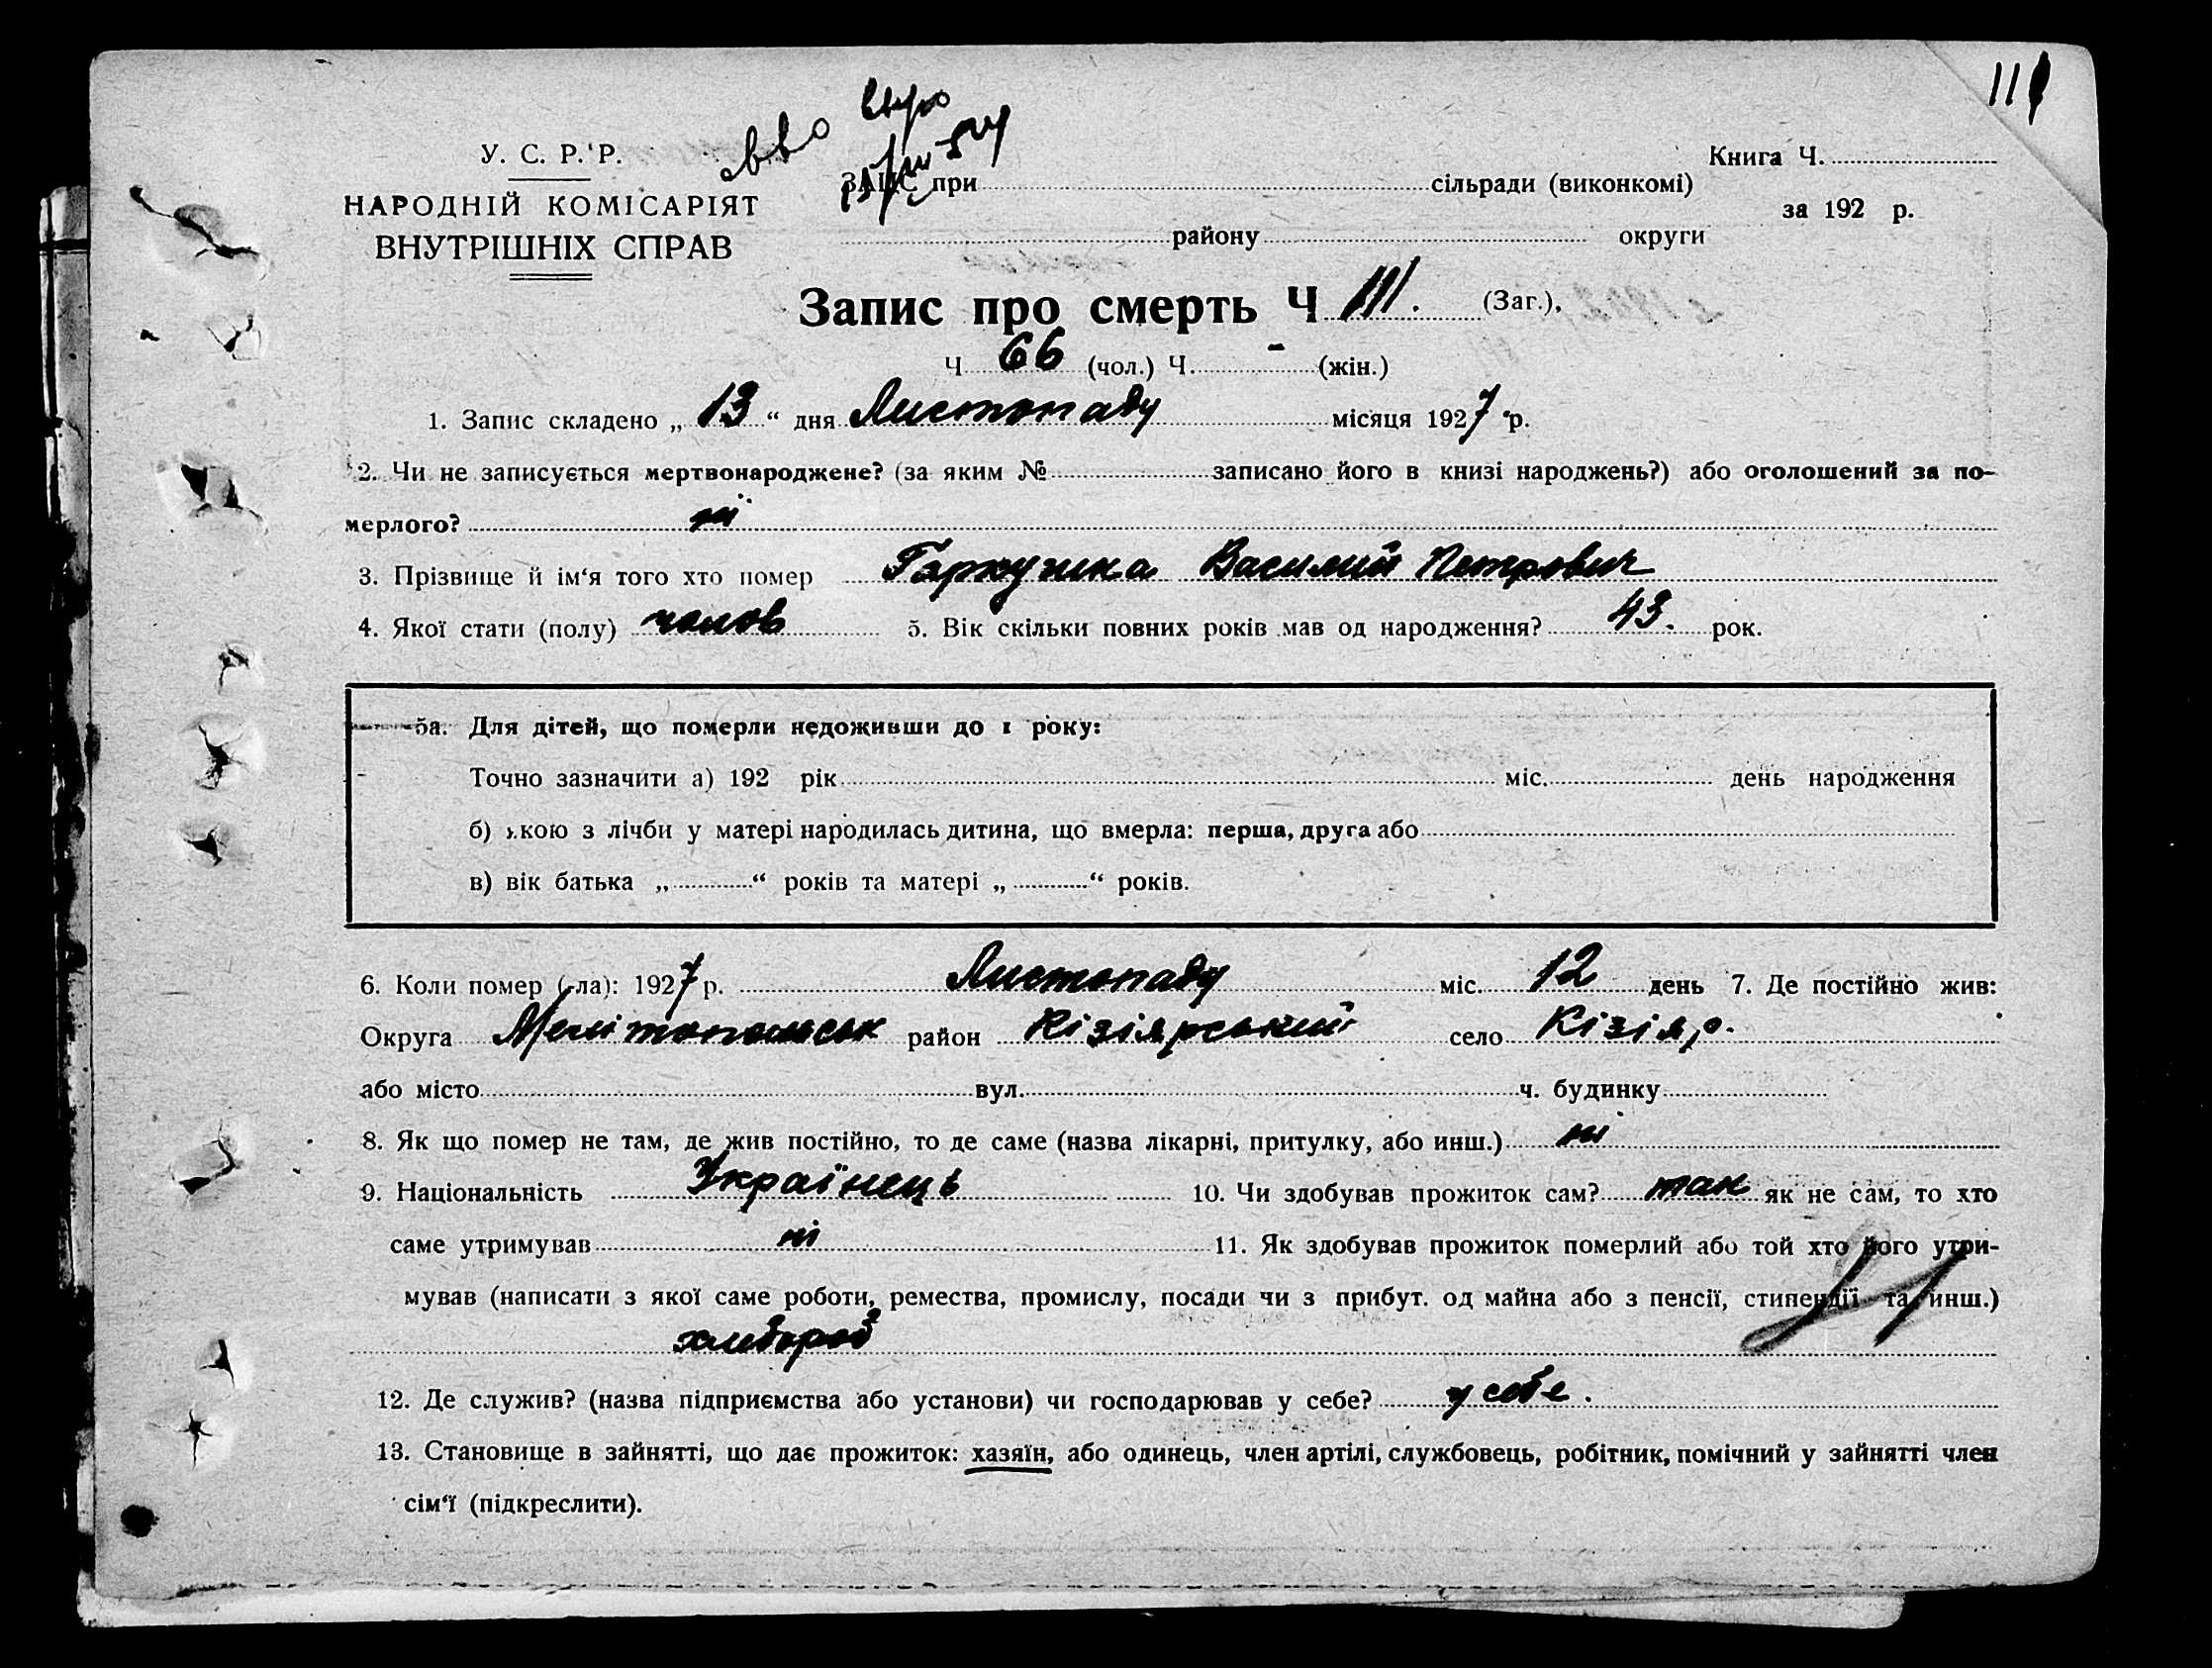 111
У. С. Р. Р.
НАРОДНІЙ КОМІСАРІЯТ
ВНУТРІШНІХ СПРАВ
ЗАЦС при сільради (виконкомі)
району округи
Книга Ч.
за 192 р.
Запис про смерть Ч 111. (Заг.),
Ч 66 (чол.) Ч. - (жін.)
1. Запис складено „ 13 “ дня Листопаду місяця 1927 р.
2. Чи не записується мертвонароджене? (за яким № записано його в книзі народжень?) або оголошений за по-
мерлого? ні
3. Прізвище й ім‘я того хто помер Гаркушка Василий Петрович
4. Якої стати (полу) чолов 5. Вік скільки повних років мав од народження? 43. рок.
5а. Для дітей, що померли недоживши до 1 року:
Точно зазначити а) 192 рік міс. день народження
б) якою з лічби у матері народилась дитина, що вмерла: перша, друга або
в) вік батька „ “ років та матері „ “ років.
6. Коли помер (-ла): 1927 р. Листопаду міс. 12 день 7. Де постійно жив:
Округа Мелітопольськ район Кізіярський село Кізіяр.
або місто вул. ч. будинку
8. Як що помер не там, де жив постійно, то де саме (назва лікарні, притулку, або инш.) ні
9. Національність Українець 10. Чи здобував прожиток сам? так як не сам, то хто
саме утримував ні 11. Як здобував прожиток померлий або той хто його утри-
мував (написати з якої саме роботи, ремества, промислу, посади чи з прибут. од майна або з пенсії, стипендії та инш.)
хлибороб
12. Де служив? (назва підприємства або установи) чи господарював у себе? у себе.
13. Становище в зайнятті, що дає прожиток: хазяїн, або одинець, член артілі, службовець, робітник, помічний у зайнятті член
сім‘ї (підкреслити).